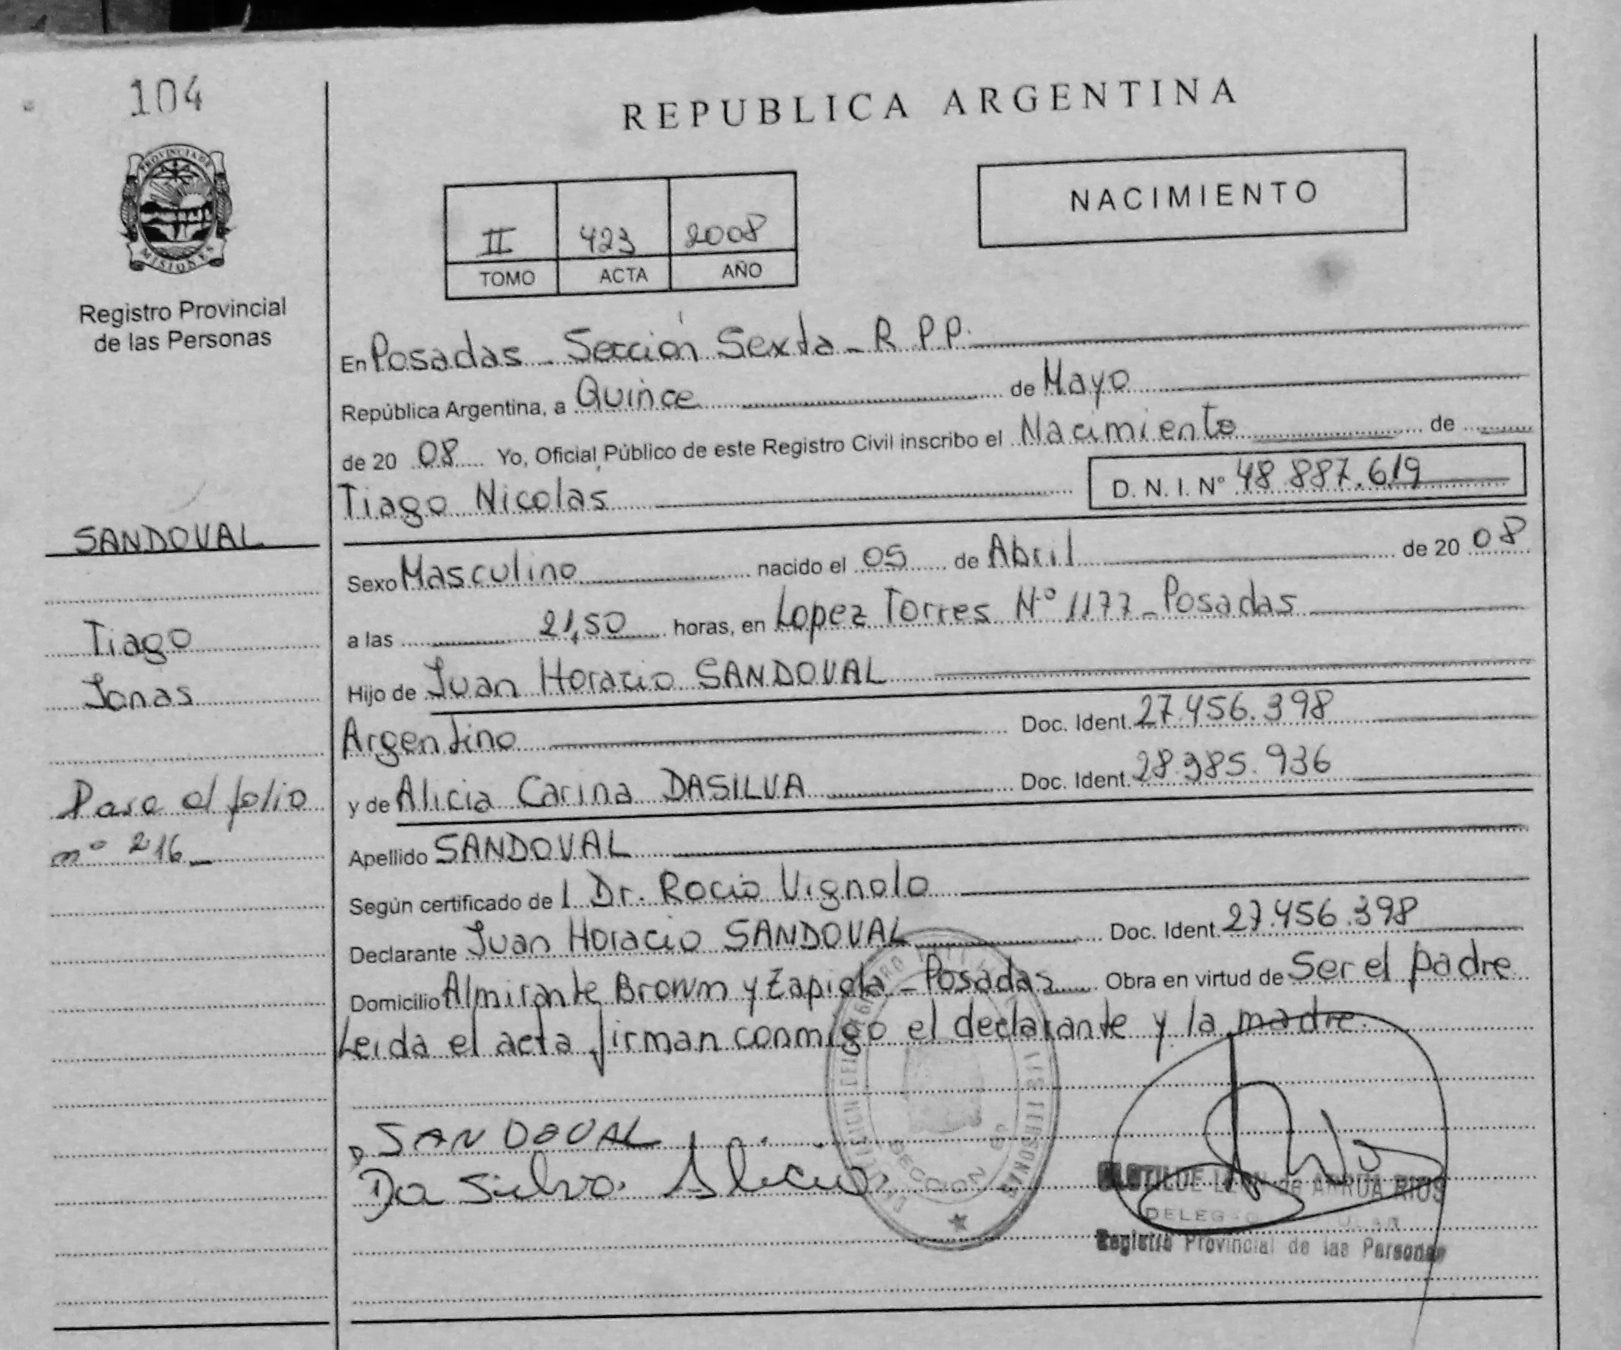 104
PROVINCIA DE
MISIONES
Registro Provincial
de las Personas
SANDOVAL
Tiago
Jonas
Pase al folio
nº 216_
REPUBLICA ARGENTINA
NACIMIENTO
II 423 2008
TOMO ACTA AÑO
En Posadas - Sección Sexta - R.P.P.
República Argentina, a Quince de Mayo
de 20 08 Yo, Oficial Público de este Registro Civil inscribo el Nacimiento de
Tiago Nicolas D. N. I. Nº 48 887.619
Sexo Masculino nacido el 05 de Abril de 20 08
a las 21,50 horas, en Lopez Torres Nº 1177 - Posadas
Hijo de Juan Horacio SANDOVAL
Argentino Doc. Ident. 27.456.398
y de Alicia Carina DASILVA Doc. Ident. 28.985.936
Apellido SANDOVAL
Según certificado de l Dr. Rocio Vignolo
Declarante Juan Horacio SANDOVAL Doc. Ident. 27.456.398
Domicilio Almirante Brown y Zapiola - Posadas Obra en virtud de Ser el padre
Leida el acta firman conmigo el declarante y la madre.
SANDOVAL
Da Silva Alicia
SECCION
CLOTILDE LEON de ARRUA RIOS
Registro Provincial de las Personas